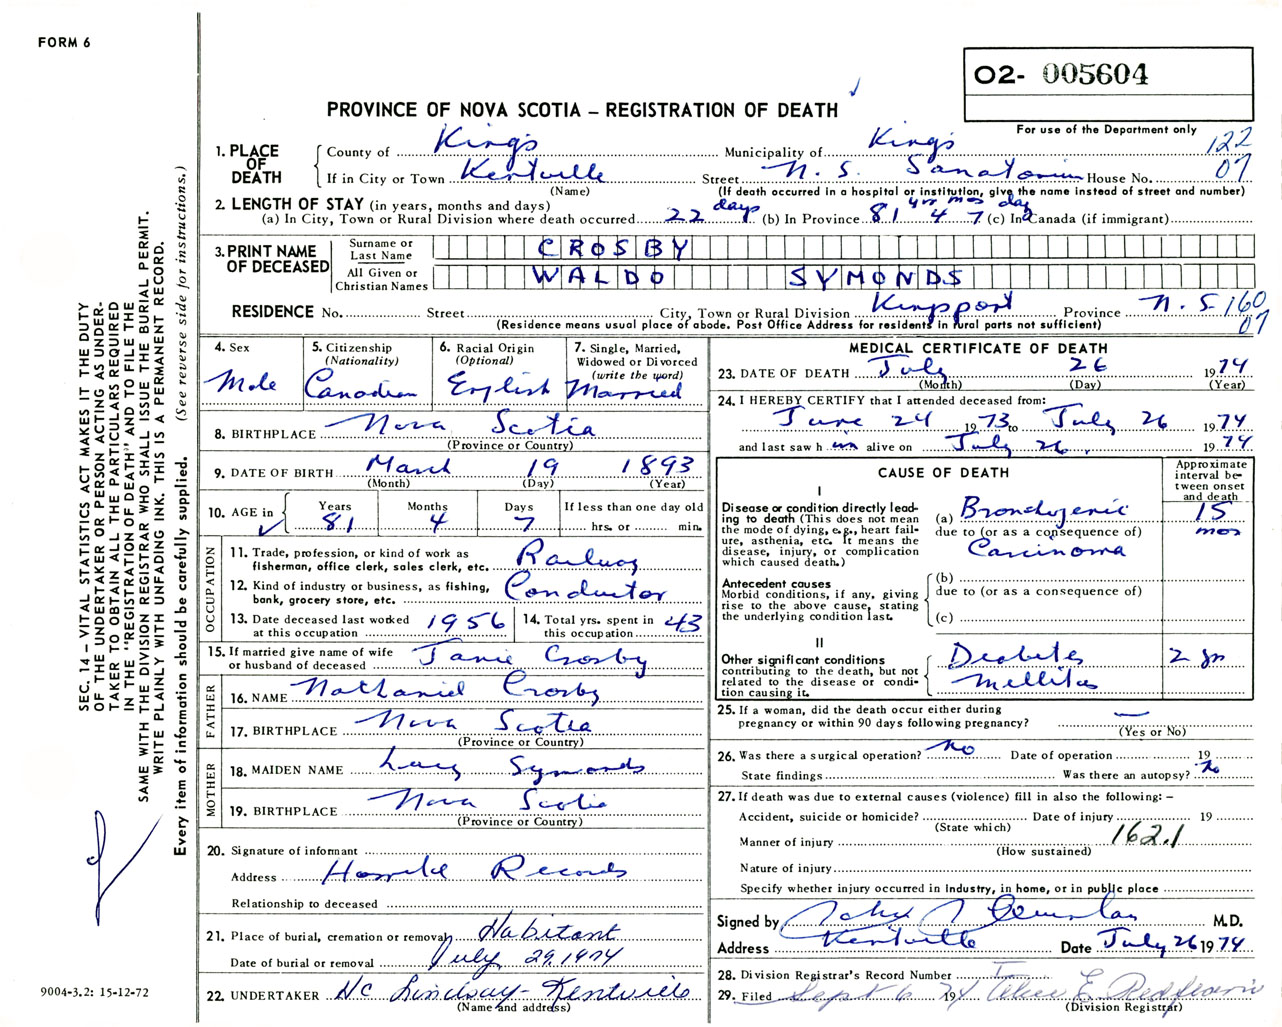 FORM 6
O2- 005604
PROVINCE OF NOVA SCOTIA – REGISTRATION OF DEATH
For use of the Department only
122
07
1. PLACE OF DEATH
County of King's Municipality of King's
If in City or Town Kentville Street N. S. Sanatorium House No.
(Name) (If death occurred in a hospital or institution, give the name instead of street and number)
2. LENGTH OF STAY (in years, months and days)
(a) In City, Town or Rural Division where death occurred 22 days (b) In Province 81 yrs 4 mos 7 days (c) In Canada (if immigrant)
3. PRINT NAME OF DECEASED
Surname or Last Name CROSBY
All Given or Christian Names WALDO SYMONDS
RESIDENCE No. Street City, Town or Rural Division Kingsport Province N. S. 160
07
(Residence means usual place of abode. Post Office Address for residents in rural parts not sufficient)
4. Sex
Male
5. Citizenship
(Nationality)
Canadian
6. Racial Origin
(Optional)
English
7. Single, Married,
Widowed or Divorced
(write the word)
Married
8. BIRTHPLACE Nova Scotia
(Province or Country)
9. DATE OF BIRTH March 19 1893
(Month) (Day) (Year)
10. AGE in Years Months Days If less than one day old
81 4 7 hrs. or min.
OCCUPATION
11. Trade, profession, or kind of work as
fisherman, office clerk, sales clerk, etc. Railway
12. Kind of industry or business, as fishing,
bank, grocery store, etc. Conductor
13. Date deceased last worked
at this occupation 1956
14. Total yrs. spent in
this occupation 43
15. If married give name of wife
or husband of deceased Janie Crosby
FATHER
16. NAME Nathaniel Crosby
17. BIRTHPLACE Nova Scotia
(Province or Country)
MOTHER
18. MAIDEN NAME Lucy Symonds
19. BIRTHPLACE Nova Scotia
(Province or Country)
20. Signature of informant
Address Hospital Records
Relationship to deceased
21. Place of burial, cremation or removal Habitant
Date of burial or removal July 29, 1974
22. UNDERTAKER Lindsay - Kentville
(Name and address)
MEDICAL CERTIFICATE OF DEATH
23. DATE OF DEATH July 26 1974
(Month) (Day) (Year)
24. I HEREBY CERTIFY that I attended deceased from:
June 24 1973 to July 26 1974
and last saw h im alive on July 26, 1974
CAUSE OF DEATH
Approximate
interval be-
tween onset
and death
I
Disease or condition directly lead-
ing to death (This does not mean
the mode of dying, e.g., heart fail-
ure, asthenia, etc. It means the
disease, injury, or complication
which caused death.)
(a) Bronchogenic 15
due to (or as a consequence of) mos
Carcinoma
Antecedent causes
Morbid conditions, if any, giving
rise to the above cause, stating
the underlying condition last.
(b)
due to (or as a consequence of)
(c)
II
Other significant conditions
contributing to the death, but not
related to the disease or condi-
tion causing it.
Diabetes 2 yrs
Mellitus
25. If a woman, did the death occur either during
pregnancy or within 90 days following pregnancy? —
(Yes or No)
26. Was there a surgical operation? No Date of operation 19
State findings Was there an autopsy? No
27. If death was due to external causes (violence) fill in also the following: –
Accident, suicide or homicide? Date of injury 19
(State which)
Manner of injury 162.1
(How sustained)
Nature of injury
Specify whether injury occurred in industry, in home, or in public place
Signed by M.D.
Address Kentville Date July 26 1974
28. Division Registrar's Record Number
29. Filed Sept 6 1974
(Division Registrar)
SEC. 14 – VITAL STATISTICS ACT MAKES IT THE DUTY
OF THE UNDERTAKER OR PERSON ACTING AS UNDER-
TAKER TO OBTAIN ALL THE PARTICULARS REQUIRED
IN THE "REGISTRATION OF DEATH" AND TO FILE THE
SAME WITH THE DIVISION REGISTRAR WHO SHALL ISSUE THE BURIAL PERMIT.
WRITE PLAINLY WITH UNFADING INK. THIS IS A PERMANENT RECORD.
Every item of information should be carefully supplied. (See reverse side for instructions.)
9004-3.2: 15-12-72